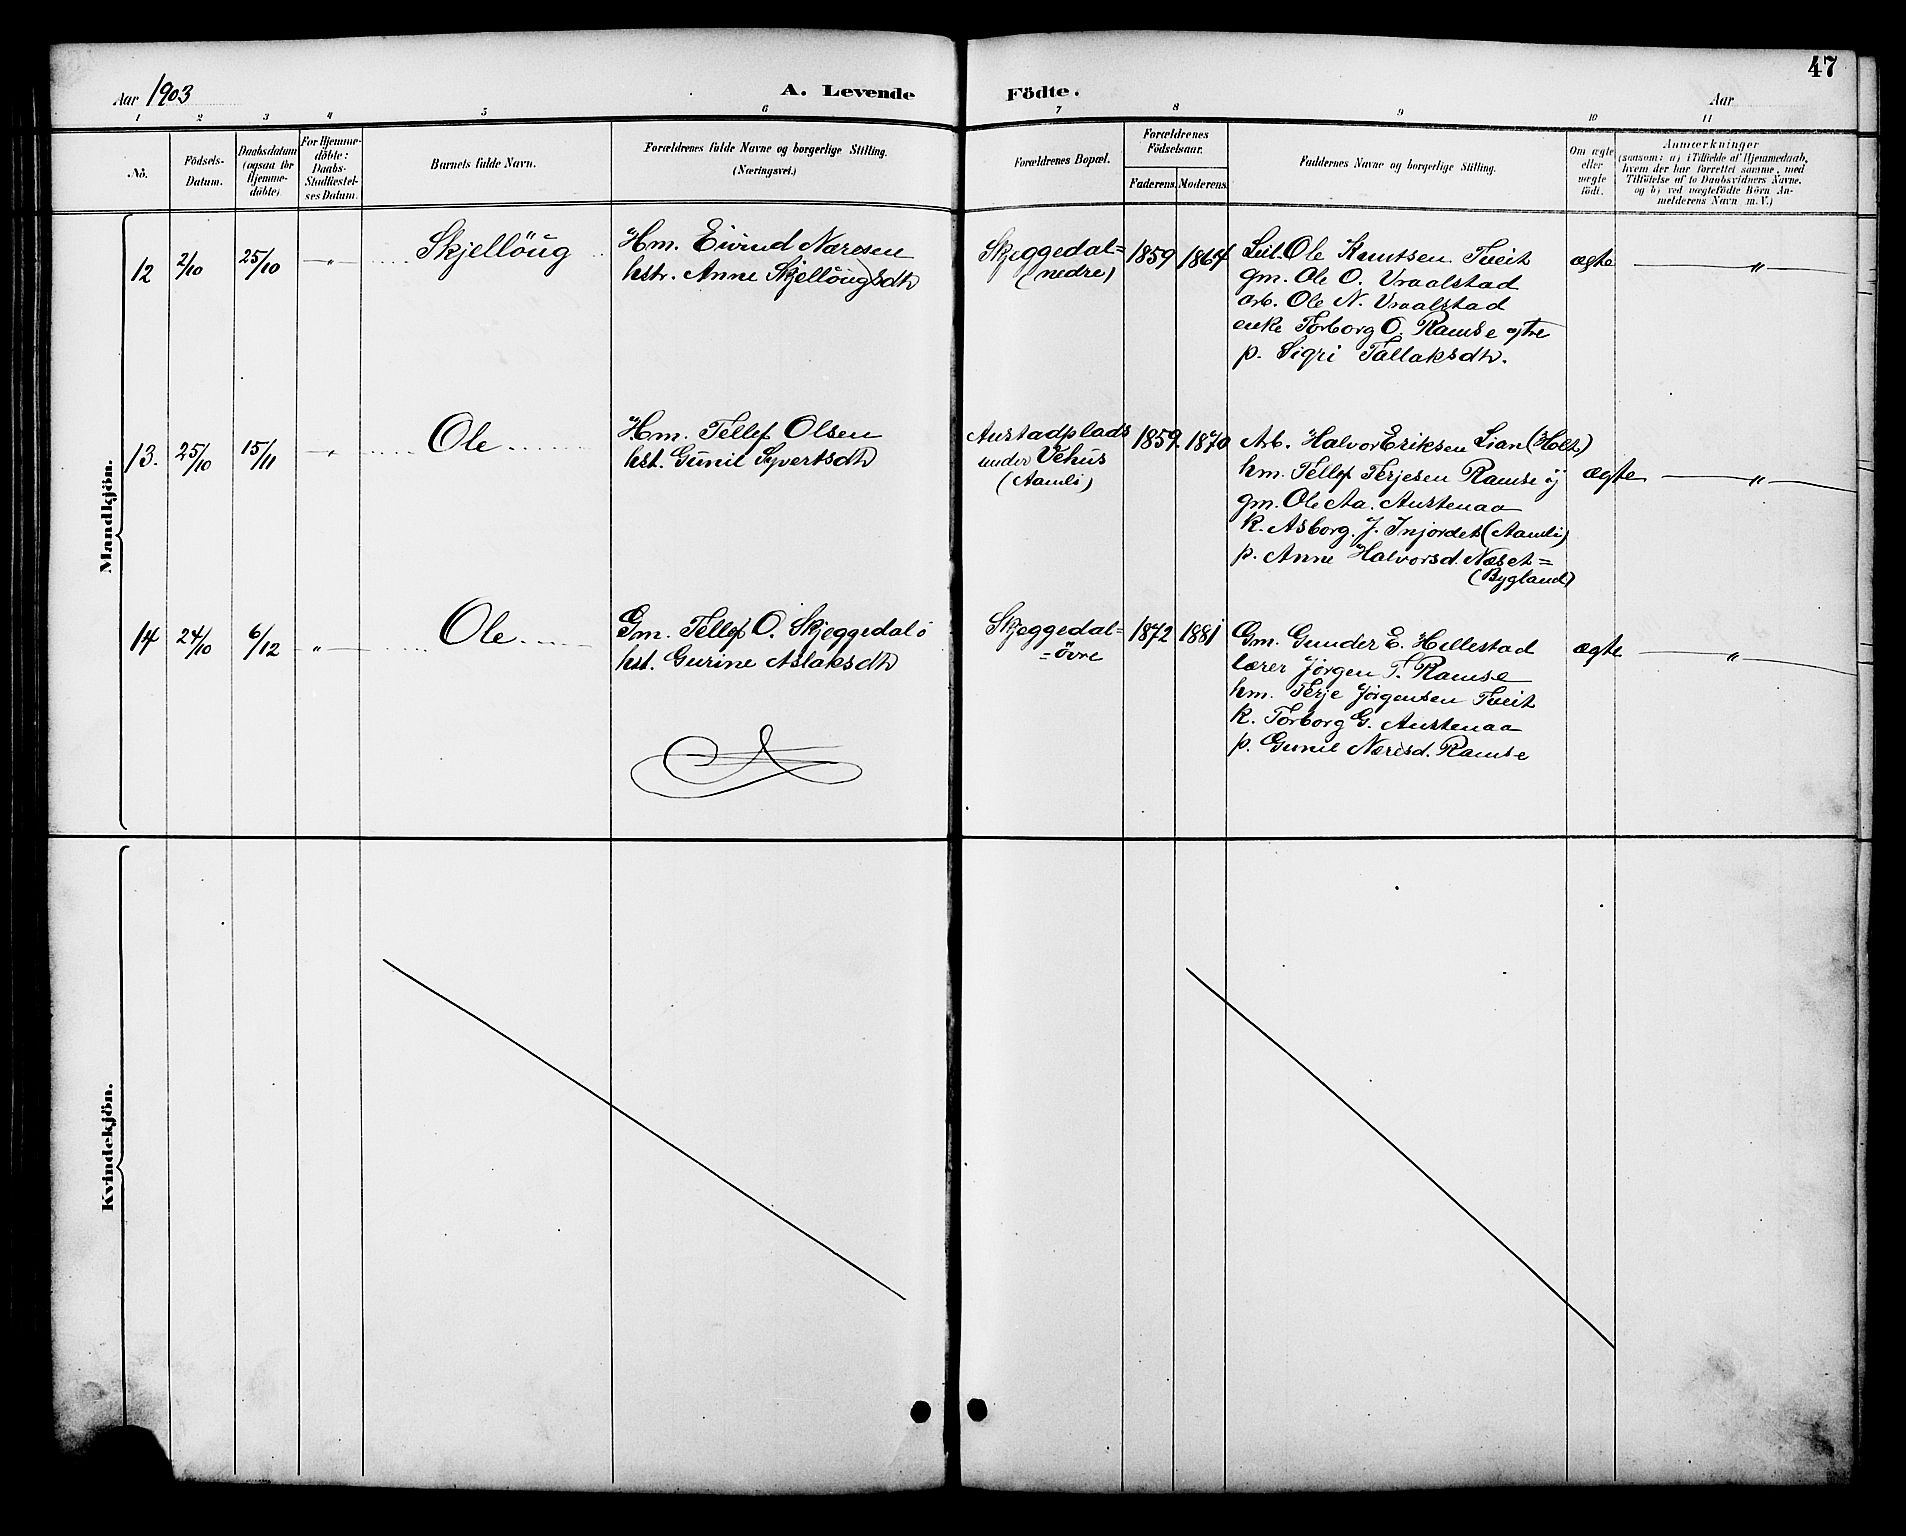 47
Aar 1903
A. Levende Födte.
Aar
1 2 3 4 5 6 7 8 9 10 11
No.
Födsels-Datum.
Daabsdatum (ogsaa for Hjemme-döbte).
For Hjemme-döbte: Daabs-Stadfæstel-ses Datum.
Barnets fulde Navn.
Forældrenes fulde Navne og borgerlige Stilling.
(Næringsvei.)
Forældrenes Bopæl.
Forældrenes Födselsaar.
Faderens. Moderens.
Faddernes Navne og borgerlige Stilling.
Om ægte eller uægte födt.
Anmærkninger
(saasom: a) i Tilfælde af Hjemmedaab,
hvem der har forrettet samme, med
Tilföielse af to Daabsvidners Navne,
og b) ved uægtefödte Börn An-
melderens Navn m. V.)
Mandkjön.
12 2/10 25/10 —„— Skjellöug
Hm. Eivind Næresen
hstr. Anne Skjellöugsdtr
Skjeggedal=
(nedre)
1859 1864
Leil. Ole Knutsen Tveit
gm. Ole O. Vraalstad
arb. Ole N. Vraalstad
enke Torborg O. Ramse östre
p. Sigri Tallaksdtr.
ægte —„—
13. 25/10 15/11 —„— Ole
Hm. Tellef Olsen
hst. Gunil Syvertsdtr
Austadplads
under Vehus
(Aamli)
1859. 1870
Arb. Halvor Eriksen Lian (Holt)
hm. Tellef Terjesen Ramse y
gm. Ole Aa. Austenaa
k. Asborg. J. Injordet (Aamli)
p. Anne Halvorsd. Næset=
(Bygland)
ægte —„—
14 24/10 6/12 —„— Ole
Gm. Tellef O. Skjeggedal ö
hst. Gurine Aslaksdtr
Skjeggedal=
=övre
1872 1881
Gm. Gunder E. Hillestad
lærer Jörgen T. Ramse
hm. Terje Jörgensen Tveit
k. Torborg G. Austenaa
p. Gunil Nærisd. Ramse
ægte —„—
Kvindekjön.